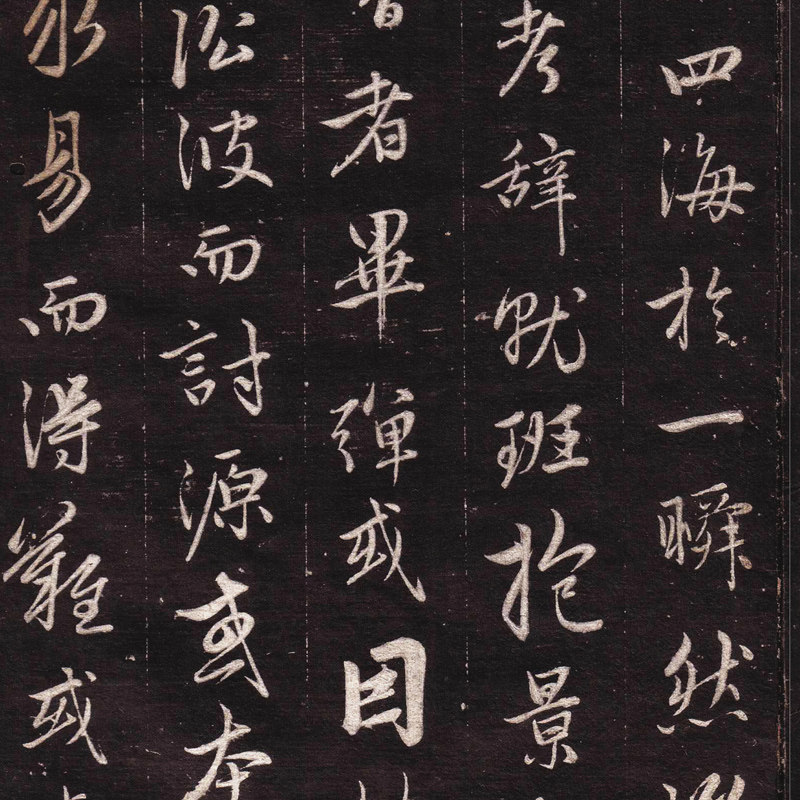 四海於一瞬然
考辭就班抱景
者畢彈或因
沿波而討源或本
求易而得難或